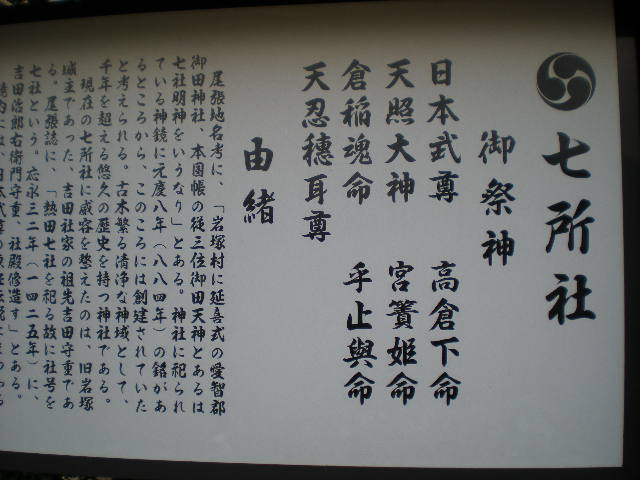 七所社
御祭神
日本武尊　高倉下命
天照大神　宮簀姫命
倉稲魂命　乎止與命
天忍穂耳尊
由緒
尾張地名考に、「岩塚村に延喜式の愛智郡
御田神社、本国帳の従三位御田天神とあるは
七社明神をいうなり」とある。神社に祀られ
ている神鏡に元慶八年（八八四年）の銘があ
るところから、このころには創建されていた
と考えられる。古木繁る清浄な神域として、
千年を超える悠久の歴史を持つ神社である。
現在の七所社に威容を整えたのは、旧岩塚
城主であった、吉田社家の祖先吉田守重であ
る。尾張誌に、「熱田七社を祀る故に社号を
七社という。応永三二年（一四二五年）に、
吉田治郎右衛門守重、社殿修造す」とある。
境内には、日本武尊の